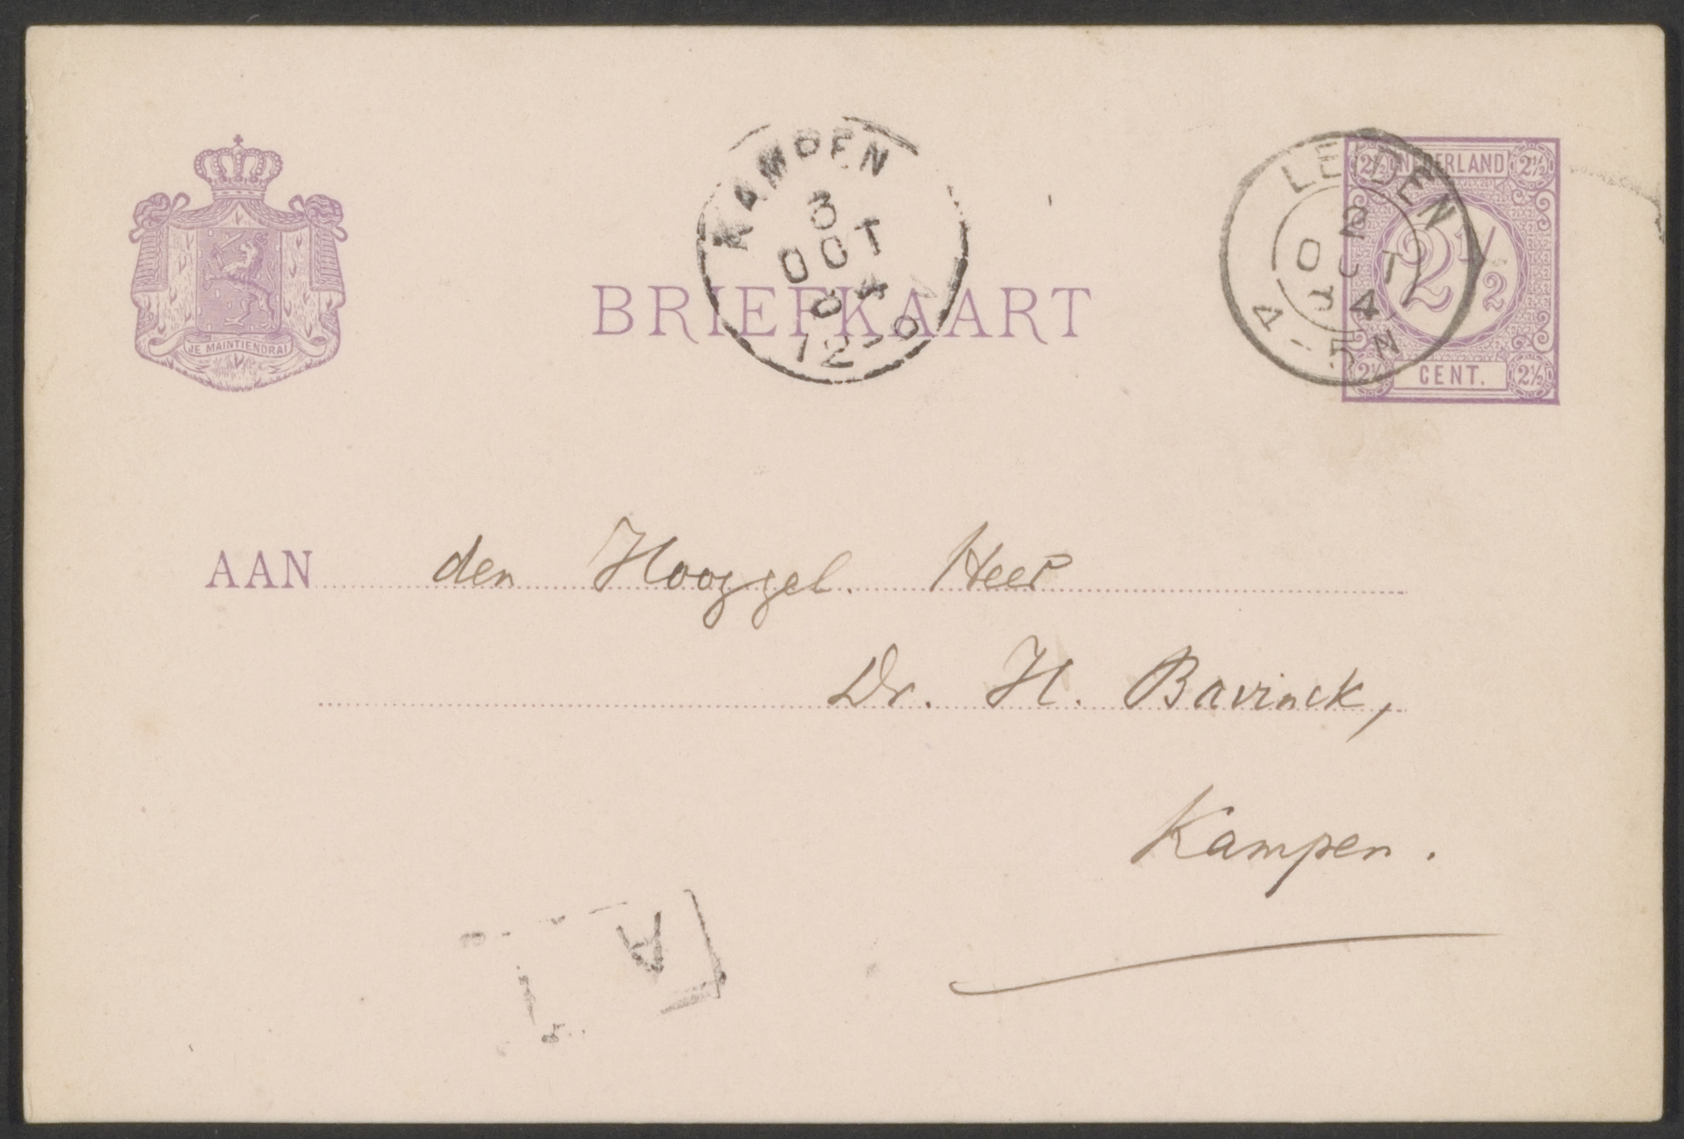 KAMPEN
3
OCT
94
12-6
LEIDEN
2
OCT
94
4-5N
2½ NEDERLAND 2½
2½
2½ CENT. 2½
JE MAINTIENDRAI
BRIEFKAART
AAN den Hooggel. Heer
Dr. H. Bavinck,
Kampen.
A